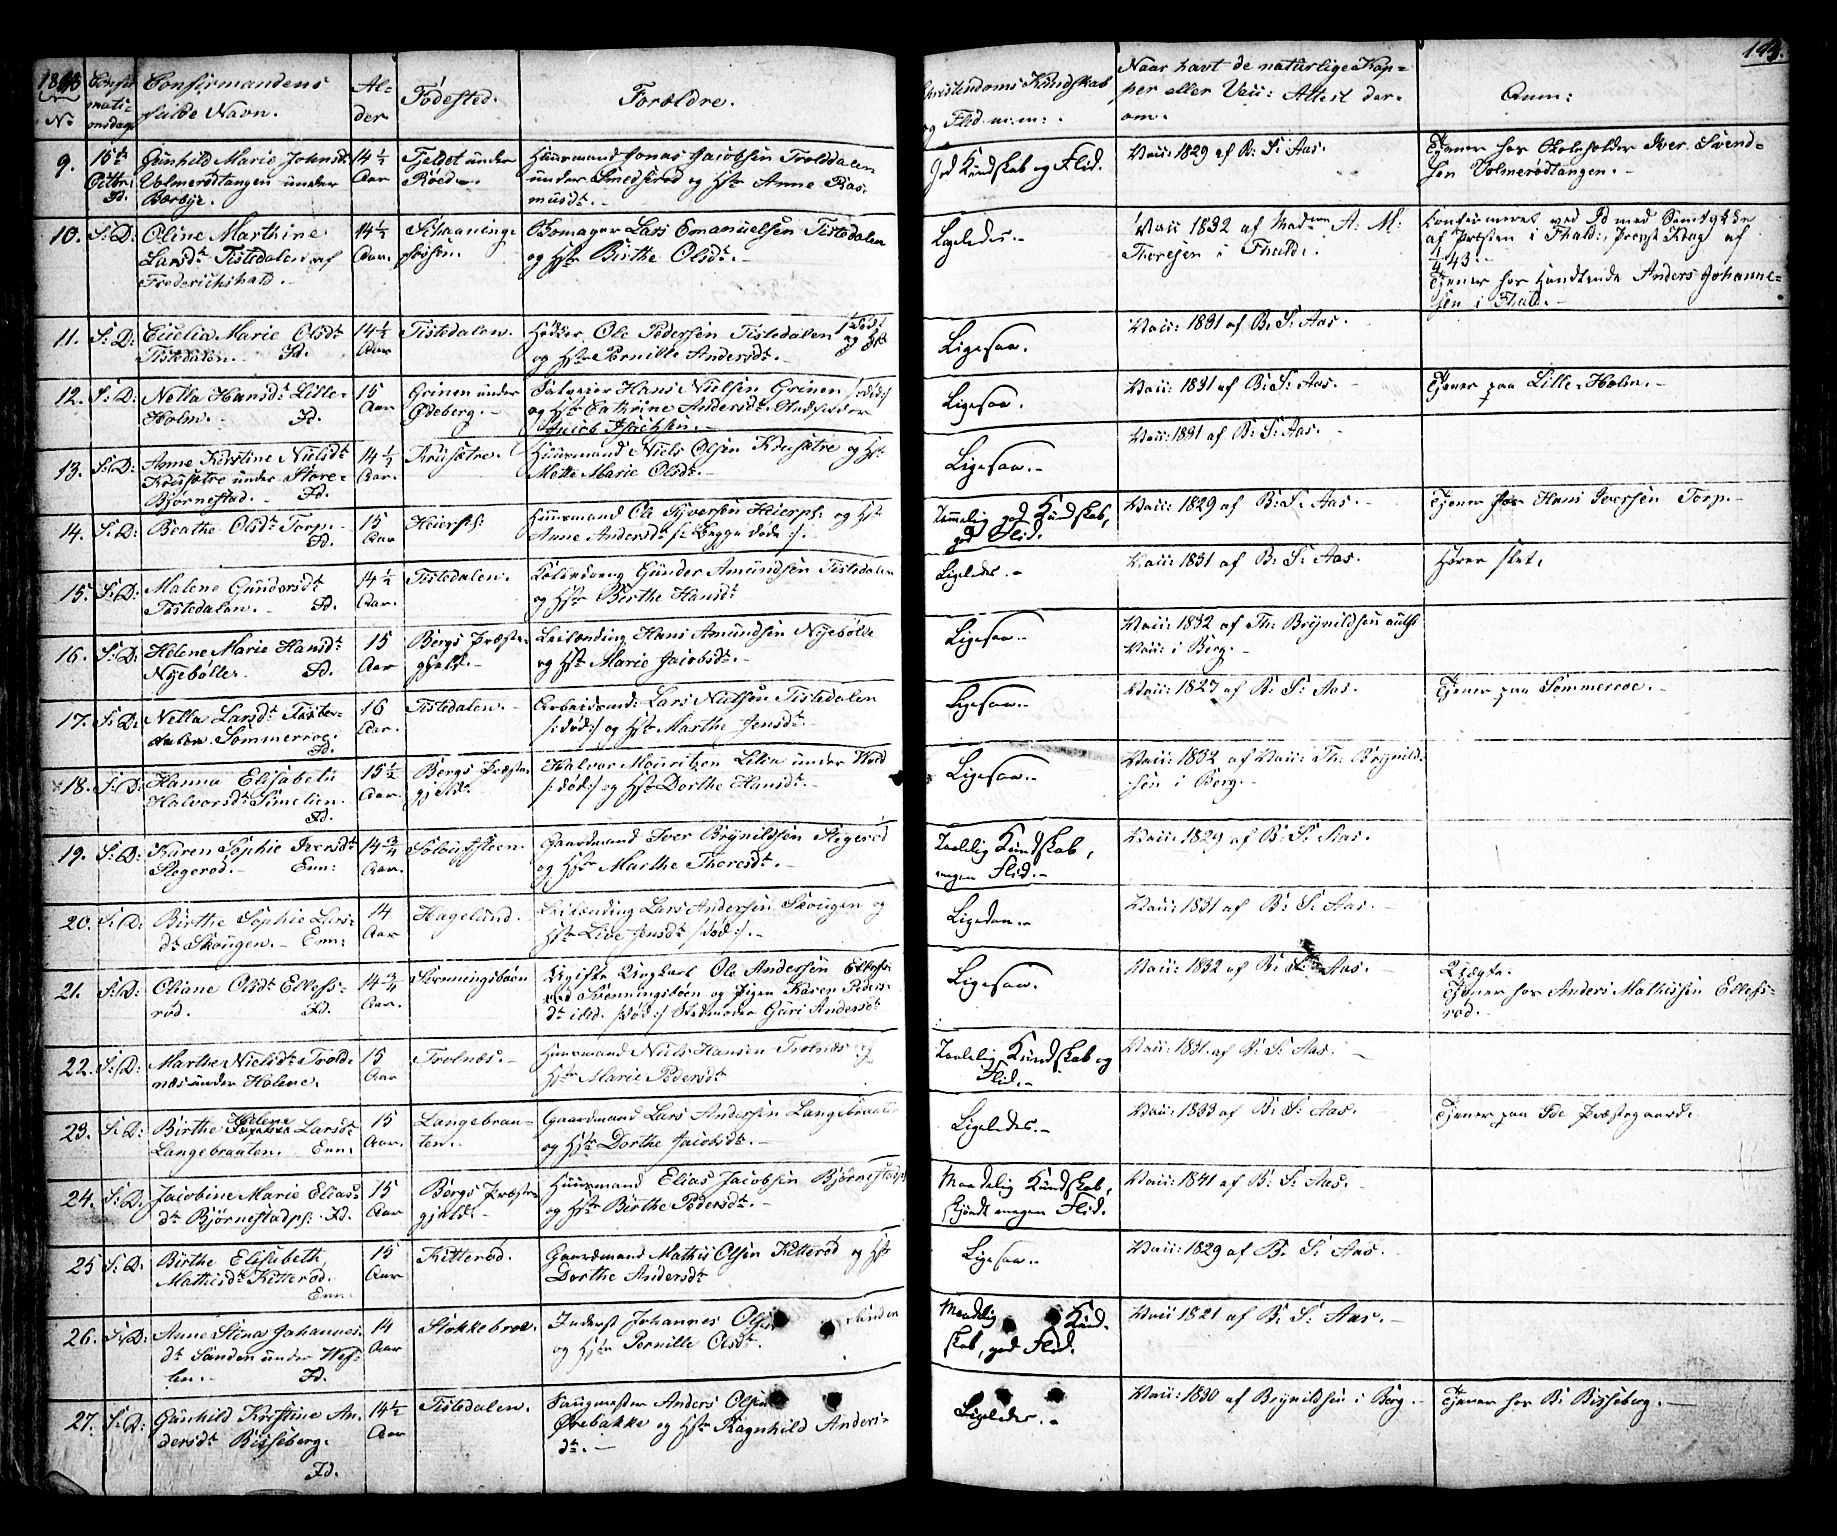 1843
No
Confir
mati-
onsdag
Confirmandens
fulde Navn.
Al-
der
Fødested.
Forældre.
Christendoms Kundskab
og Flid m:m:
Naar havt de naturlige Kop-
per eller Vac: Attest der-
om.
Anm:
143.
9.
15de
Octbr.
Gunhild Marie Johnsdt
Volmerødtangen under
Bærbye.
Id.
14 1/2
Aar
Tjeldet under
Røed.
Huusmand Jonas Jacobsen Troldalen
under Smedsrød og Hst Anne Ras-
musdt.
God Kundskab og Flid.
Vacc: 1829 af B: S: Aas.
Tjener hos Skoleholder Iver Svend-
sen Volmerødtangen.
10.
S: D:
Oline Marthine
Larsdt Tistedalen af
Frederichshald.
14 1/2
Aar.
Skaaning-
fossen.
Bomager Lars Emanuelsen Tistedalen
og Hst Birthe Olsdt.
Ligeledes.
Vacc 1832 af Madme A: M:
Thoresen i Fhald.
Confirmeret ved Id med Samtykke
af Præsten i Fhald, Provst Krag af
4/4 43.
Tjener hos Handlende Anders Johanne-
sen i Fhald.
11.
S: D:
Cicilia Marie Olsdt
Tistedalen. Id.
14 1/2
Aar
Tistedalen.
Ole Pedersen Tistedalen /:død:/
og Hst Pernille Andersdt.
Ligesaa.
Vacc: 1831 af B: S: Aas.
12.
S: D:
Nella Hansdt Lille-
Holm. Id.
15
Aar
Grinen under
Ødeberg.
Hans Nielsen Grinen /:død:/
og Hst Cathrine Andersdt. Stedfader
Jacob
Ligesaa.
Vacc: 1831 af B: S: Aas.
Tjener paa Lille-Holm.
13.
S: D:
Anne Kirstine Nielsdt
Krusætre under Store-
Bjørnestad. Id.
14 1/2
Aar.
Krusætre.
Huusmand Niels Olsen Krusætre og Hst
Mette Marie Olsdt.
Ligesaa.
Vacc: 1831 af B: S: Aas.
14.
S: D:
Beathe Olsdt Torp.
Id.
15
Aar
Heierpl:
Huusmand Ole Syversen Heierpl: og Hst
Anne Andersdt /: Begge døde :/.
Temmelig god Kundskab,
god Flid.
Vacc: 1829 af B: S: Aas.
Tjener hos Hans Iversen Torp.
15.
S: D:
Malene Gundersdt
Tistedalen. Id.
14 1/2
Aar.
Tistedalen.
Gunder Amundsen Tistedalen
og Hst Berthe Hansdt
Ligeledes.
Vacc: 1831 af B: S: Aas.
Hører slet.
16.
S: D:
Helene Marie Hansdt
Nyebølle. Id.
15
Aar
Bergs Præste-
gjeld.
Leilænding Hans Amundsen Nyebølle
og Hst Marie Jacobsdt.
Ligesaa.
Vacc: 1832 af Th: Brynildsen
Vacc: i Berg.
17.
S: D:
Nella Larsdt Tiste-
dalen Sommerroe.
Id.
16
Aar.
Tistedalen.
Arbeidsmd: Lars Nielsen Tistedalen
/:død:/ og Hst Marthe Jensdt.
Ligesaa.
Vacc: 1827 af B: S: Aas.
Tjener paa Sommerroe.
18.
S: D:
Hanna Elisabeth
Halvorsdt Simelien.
Id.
15 1/2
Aar.
Bergs Præste-
gjeld.
Halvor Mouritzen Lilia under
/:død:/ og Hst Dorthe Hansdt.
Ligesaa.
Vacc: 1832 af Vacc: Th: Brynild-
sen i Berg.
19.
S: D:
Karen Sophie Iversdt
Stegerød. Enn:
14 3/4
Aar.
Gaardmand Iver Brynildsen Stegerød
og Hst Marthe Thoresdt.
Taalelig Kundskab,
megen Flid.
Vacc: 1829 af B: S: Aas.
20.
S: D:
Birthe Sophie Lars-
dt Skougen. Enn:
14
Aar
Hagelund.
Leilænding Lars Andersen Skougen og
Hst Live Jensdt /:død:/.
Ligedan.
Vacc: 1831 af B: S: Aas.
21.
S: D:
Oliane Olsdt Ellefs-
rød. Id.
14 3/4
Aar.
Svenningsbøen
Ugifte Ungkarl Ole Andersen Ellefs-
rød Svenningsbøen og Pigen Karen Peders-
dt ibid. /:død:/ Stedmoder Guri Andersdt
Ligesaa.
Vacc: 1832 af B: S: Aas.
Uægte.
Tjener hos Anders Mathissen Ellefs-
rød.
22.
S: D:
Marthe Nielsdt Trold-
næs under Holene.
15
Aar
Trolnæs.
Huusmand Niels Hansen Trolnæs og
Hst Marie Pedersdt
Taalelig Kundskab og
Flid.
Vacc: 1831 af B: S: Aas.
23.
S: D:
Helene
Birthe Larsdt
Langebraaten. Enn:
15
Aar.
Langebraa-
ten.
Gaardmand Lars Andersen Langebraaten
og Hst Dorthe Jacobsdt.
Ligeledes.
Vacc: 1833 af B: S: Aas.
Tjener paa Ide Præstegaard.
24.
S: D:
Jacobine Marie Elias-
dt Bjørnestadpl: Id.
15
Aar
Bergs Præste-
gjeld.
Huusmand Elias Jacobsen Bjørnestadpl
og Hst Birthe Pedersdt.
Maadelig Kundskab,
skjøndt megen Flid.
Vacc: 1841 af B: S: Aas.
25
S: D:
Birthe Elisabeth
Mathisdt Kitterød.
Enn.
15
Aar
Kitterød.
Gaardmand Mathis Olsen Kitterød og Hst
Dorthe Andersdt
Ligesaa.
Vacc: 1829 af B: S: Aas.
26.
S: D:
Anne Stina Johannes-
dt Sanden under
Id.
14
Aar
Stokkebroe.
Inderst Johannes Olsen Sanden
og Hst Pernille Olsdt.
Maadelig Kund-
skab, god Flid.
Vacc: 1821 af B: S: Aas.
27.
S: D:
Gunhild Kirstine An-
dersdt Bisseberg.
Id.
14 1/2
Aar
Tistedalen.
Saugmester Anders Olsen
Øvrebakke og Hst Ragnhild Anders-
dt.
Ligeledes.
Vacc: 1830 af Brynildsen i Berg.
Tjener hos B: Bisseberg.